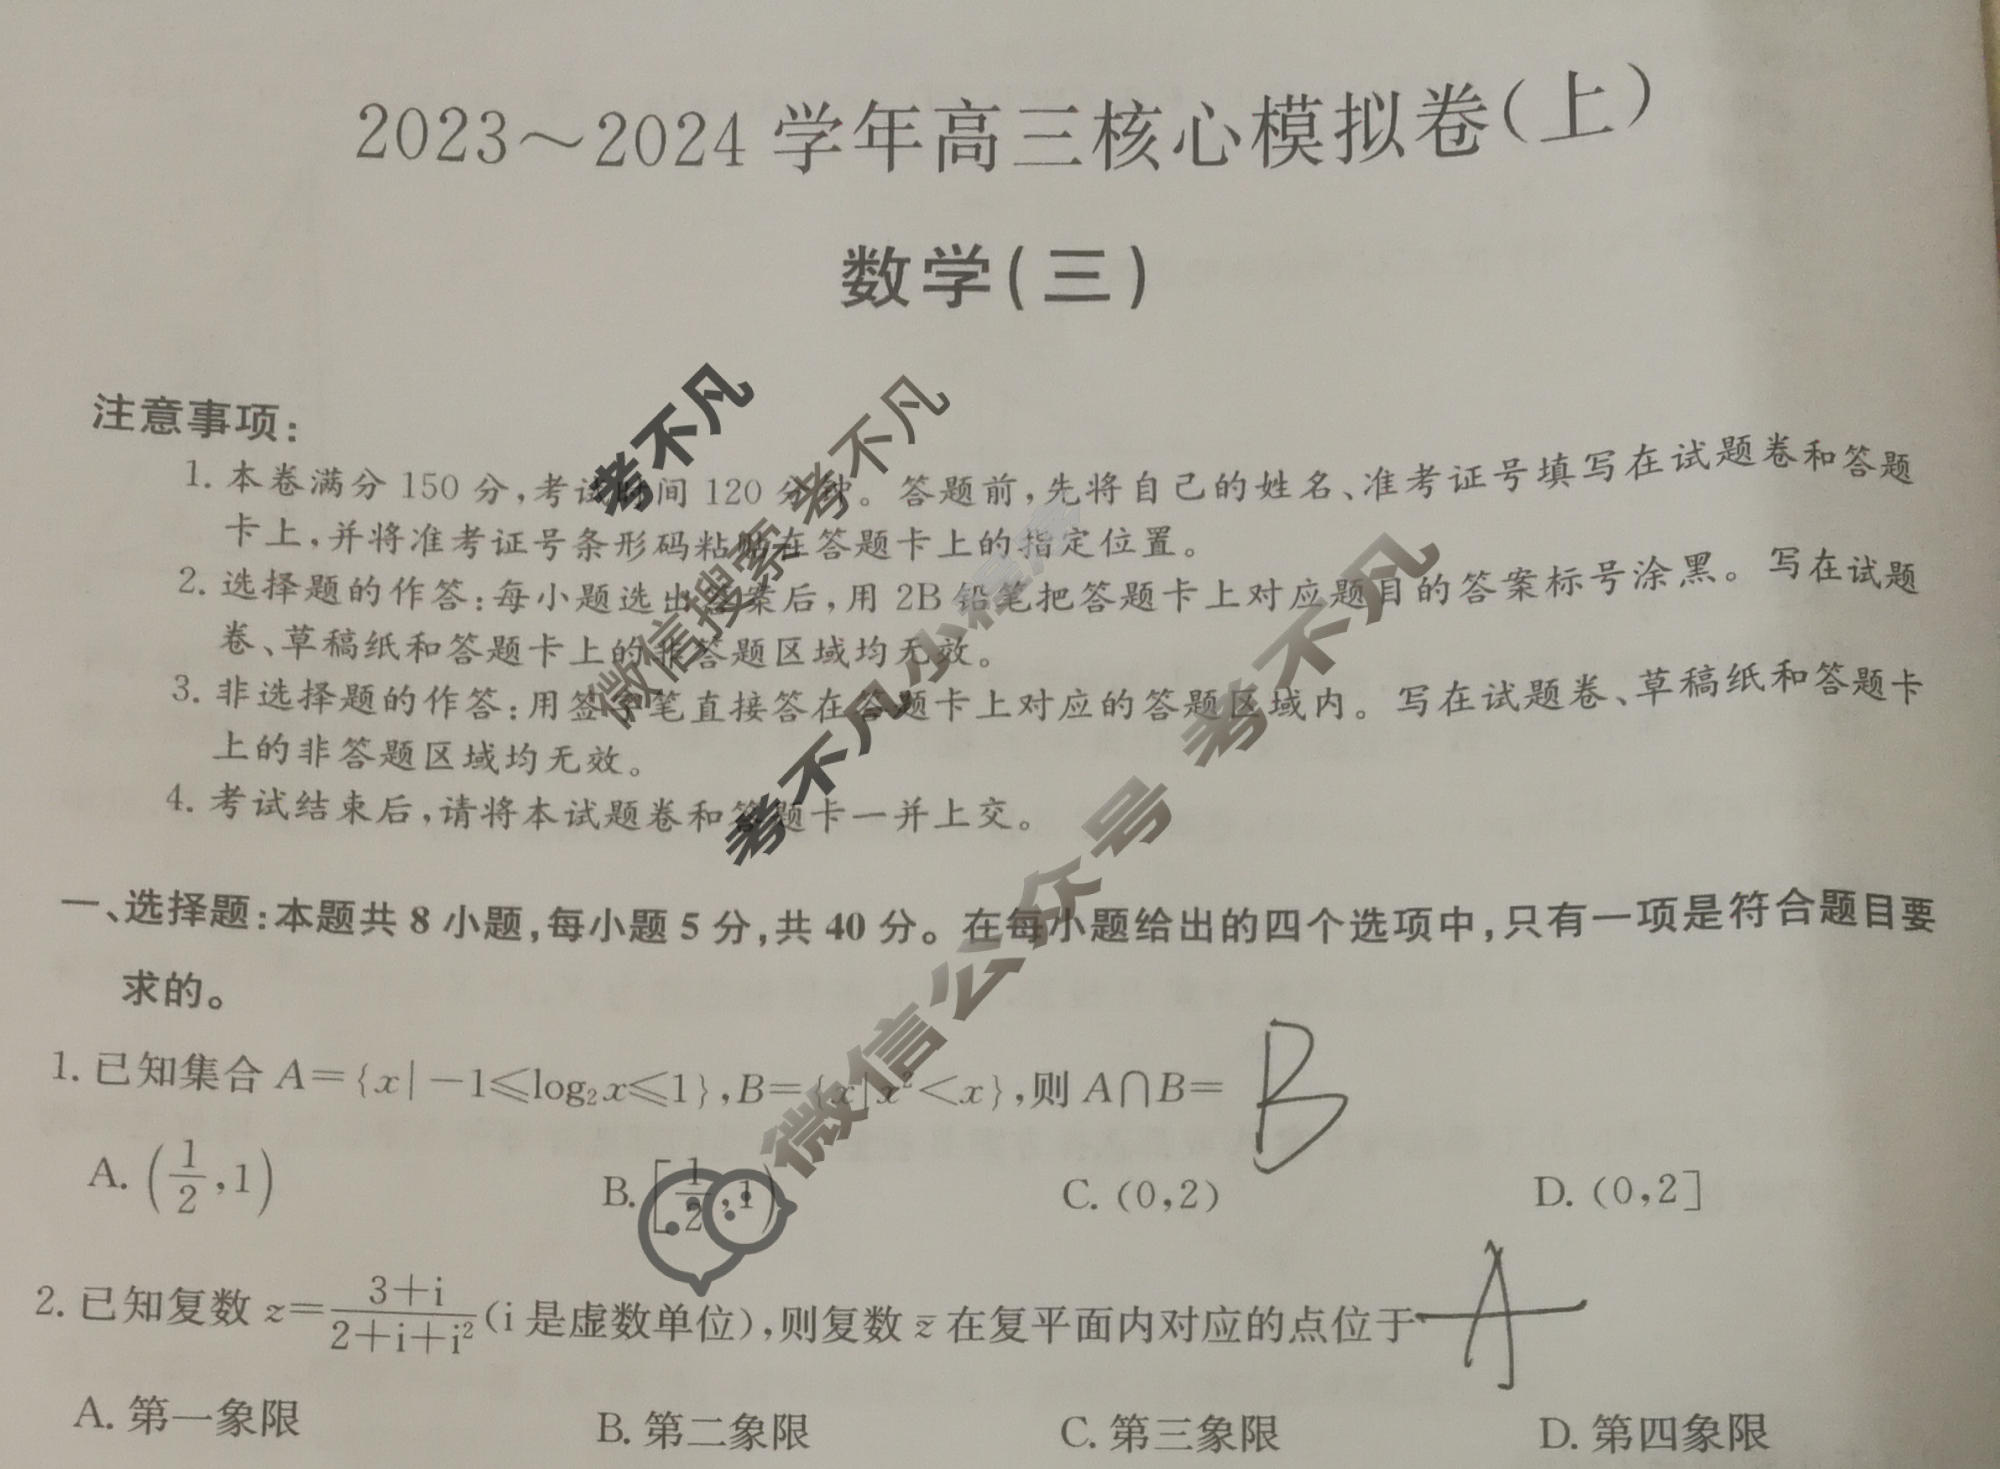 2023～2024 学年高三核心模拟卷(上)
数学(三)
注意事项:
1. 本卷满分 150 分,考试时间 120 分钟。答题前,先将自己的姓名、准考证号填写在试题卷和答题
卡上,并将准考证号条形码粘贴在答题卡上的指定位置。
2. 选择题的作答:每小题选出答案后,用 2B 铅笔把答题卡上对应题目的答案标号涂黑。写在试题
卷、草稿纸和答题卡上的非答题区域均无效。
3. 非选择题的作答:用签字笔直接答在答题卡上对应的答题区域内。写在试题卷、草稿纸和答题卡
上的非答题区域均无效。
4. 考试结束后,请将本试题卷和答题卡一并上交。
考不凡
微信搜索 考不凡
考不凡小程序
微信公众号 考不凡
一、选择题:本题共 8 小题,每小题 5 分,共 40 分。在每小题给出的四个选项中,只有一项是符合题目要
求的。
1. 已知集合 A={x|-1≤log₂x≤1},B={x|x²<x},则 A∩B= B
A. (1/2,1) B. [1/2,1) C. (0,2) D. (0,2]
2. 已知复数 z=(3+i)/(2+i+i²)(i 是虚数单位),则复数 z̄ 在复平面内对应的点位于 A
A. 第一象限 B. 第二象限 C. 第三象限 D. 第四象限